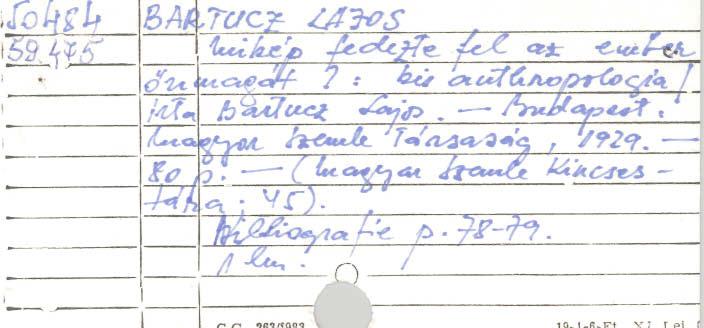 50484 BARTUCZ LAJOS
59.475 Mikép fedezte fel az ember
önmagát? : kis anthropologia /
írta Bartucz Lajos. — Budapest :
Magyar Szemle Társaság, 1929. —
80 p. — (Magyar Szemle Kincses-
tára ; 45).
Bibliografie p. 78-79.
1 lm.
C.C. 263/1983 19-1-6-Et. XI Lei